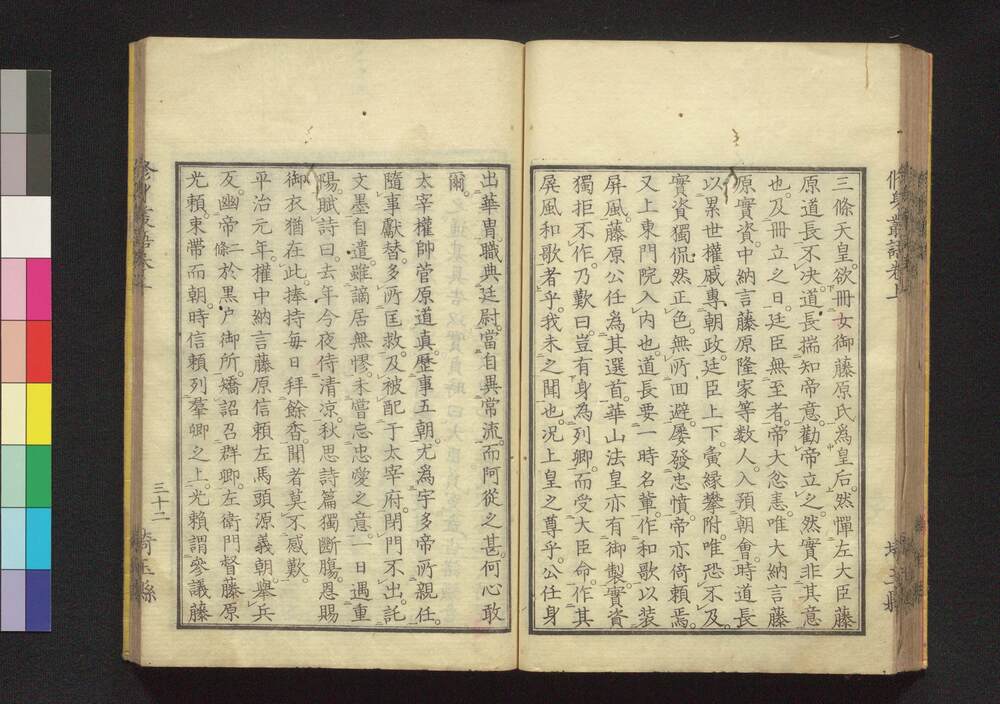 三條天皇。欲冊女御藤原氏爲皇后。然憚左大臣藤
原道長不決。道長揣知帝意。勸帝立之。然實非其意
也。及冊立之日。廷臣無至者。帝大忿恚。唯大納言藤
原實資。中納言藤原隆家等數人。入預朝會。時道長
以累世權戚專朝政。廷臣上下。夤縁攀附。唯恐不及。
實資獨侃然正色。無所回避。屢發忠憤。帝亦倚賴焉。
又上東門院入内也。道長要一時名輩。作和歌以裝
屏風。藤原公任爲其選首。華山法皇亦有御製。實資
獨拒不作。乃歎曰。豈有身為列卿。而受大臣命。作其
屏風和歌者乎。我未之聞也。况上皇之尊乎。公任身
出華胄。職典廷尉。當自異常流。而阿從之甚。何心敢
爾。
太宰權帥菅原道真。歷事五朝。尤為宇多帝所親任。
隨事獻替。多所匡救。及被配于太宰府。閉門不出。託
文墨自遣。雖謫居無憀。未嘗忘忠愛之意。一日遇重
陽。賦詩曰。去年今夜侍清涼。秋思詩篇獨斷膓。恩賜
御衣猶在此。捧持毎日拜餘香。聞者莫不感歎。
平治元年。權中納言藤原信賴左馬頭源義朝。舉兵
反。幽帝二條於黒戸御所。矯詔召群卿。左衛門督藤原
光賴。束帶而朝。時信賴列羣卿之上。光賴謂參議藤
三十二
埼玉縣